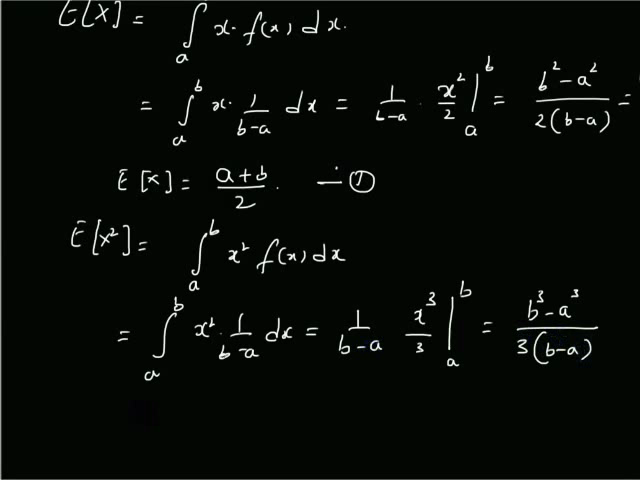 E[X] = ∫ₐ x· f(x) dx.
= ∫ₐᵇ x· 1/(b-a) dx = 1/(b-a) · x²/2 |ₐᵇ = (b²-a²)/(2(b-a)) =
E[X] = (a+b)/2. — ①
E[X²] = ∫ₐᵇ x² f(x) dx
= ∫ₐᵇ x²· 1/(b-a) dx = 1/(b-a) x³/3 |ₐᵇ = (b³-a³)/(3(b-a))